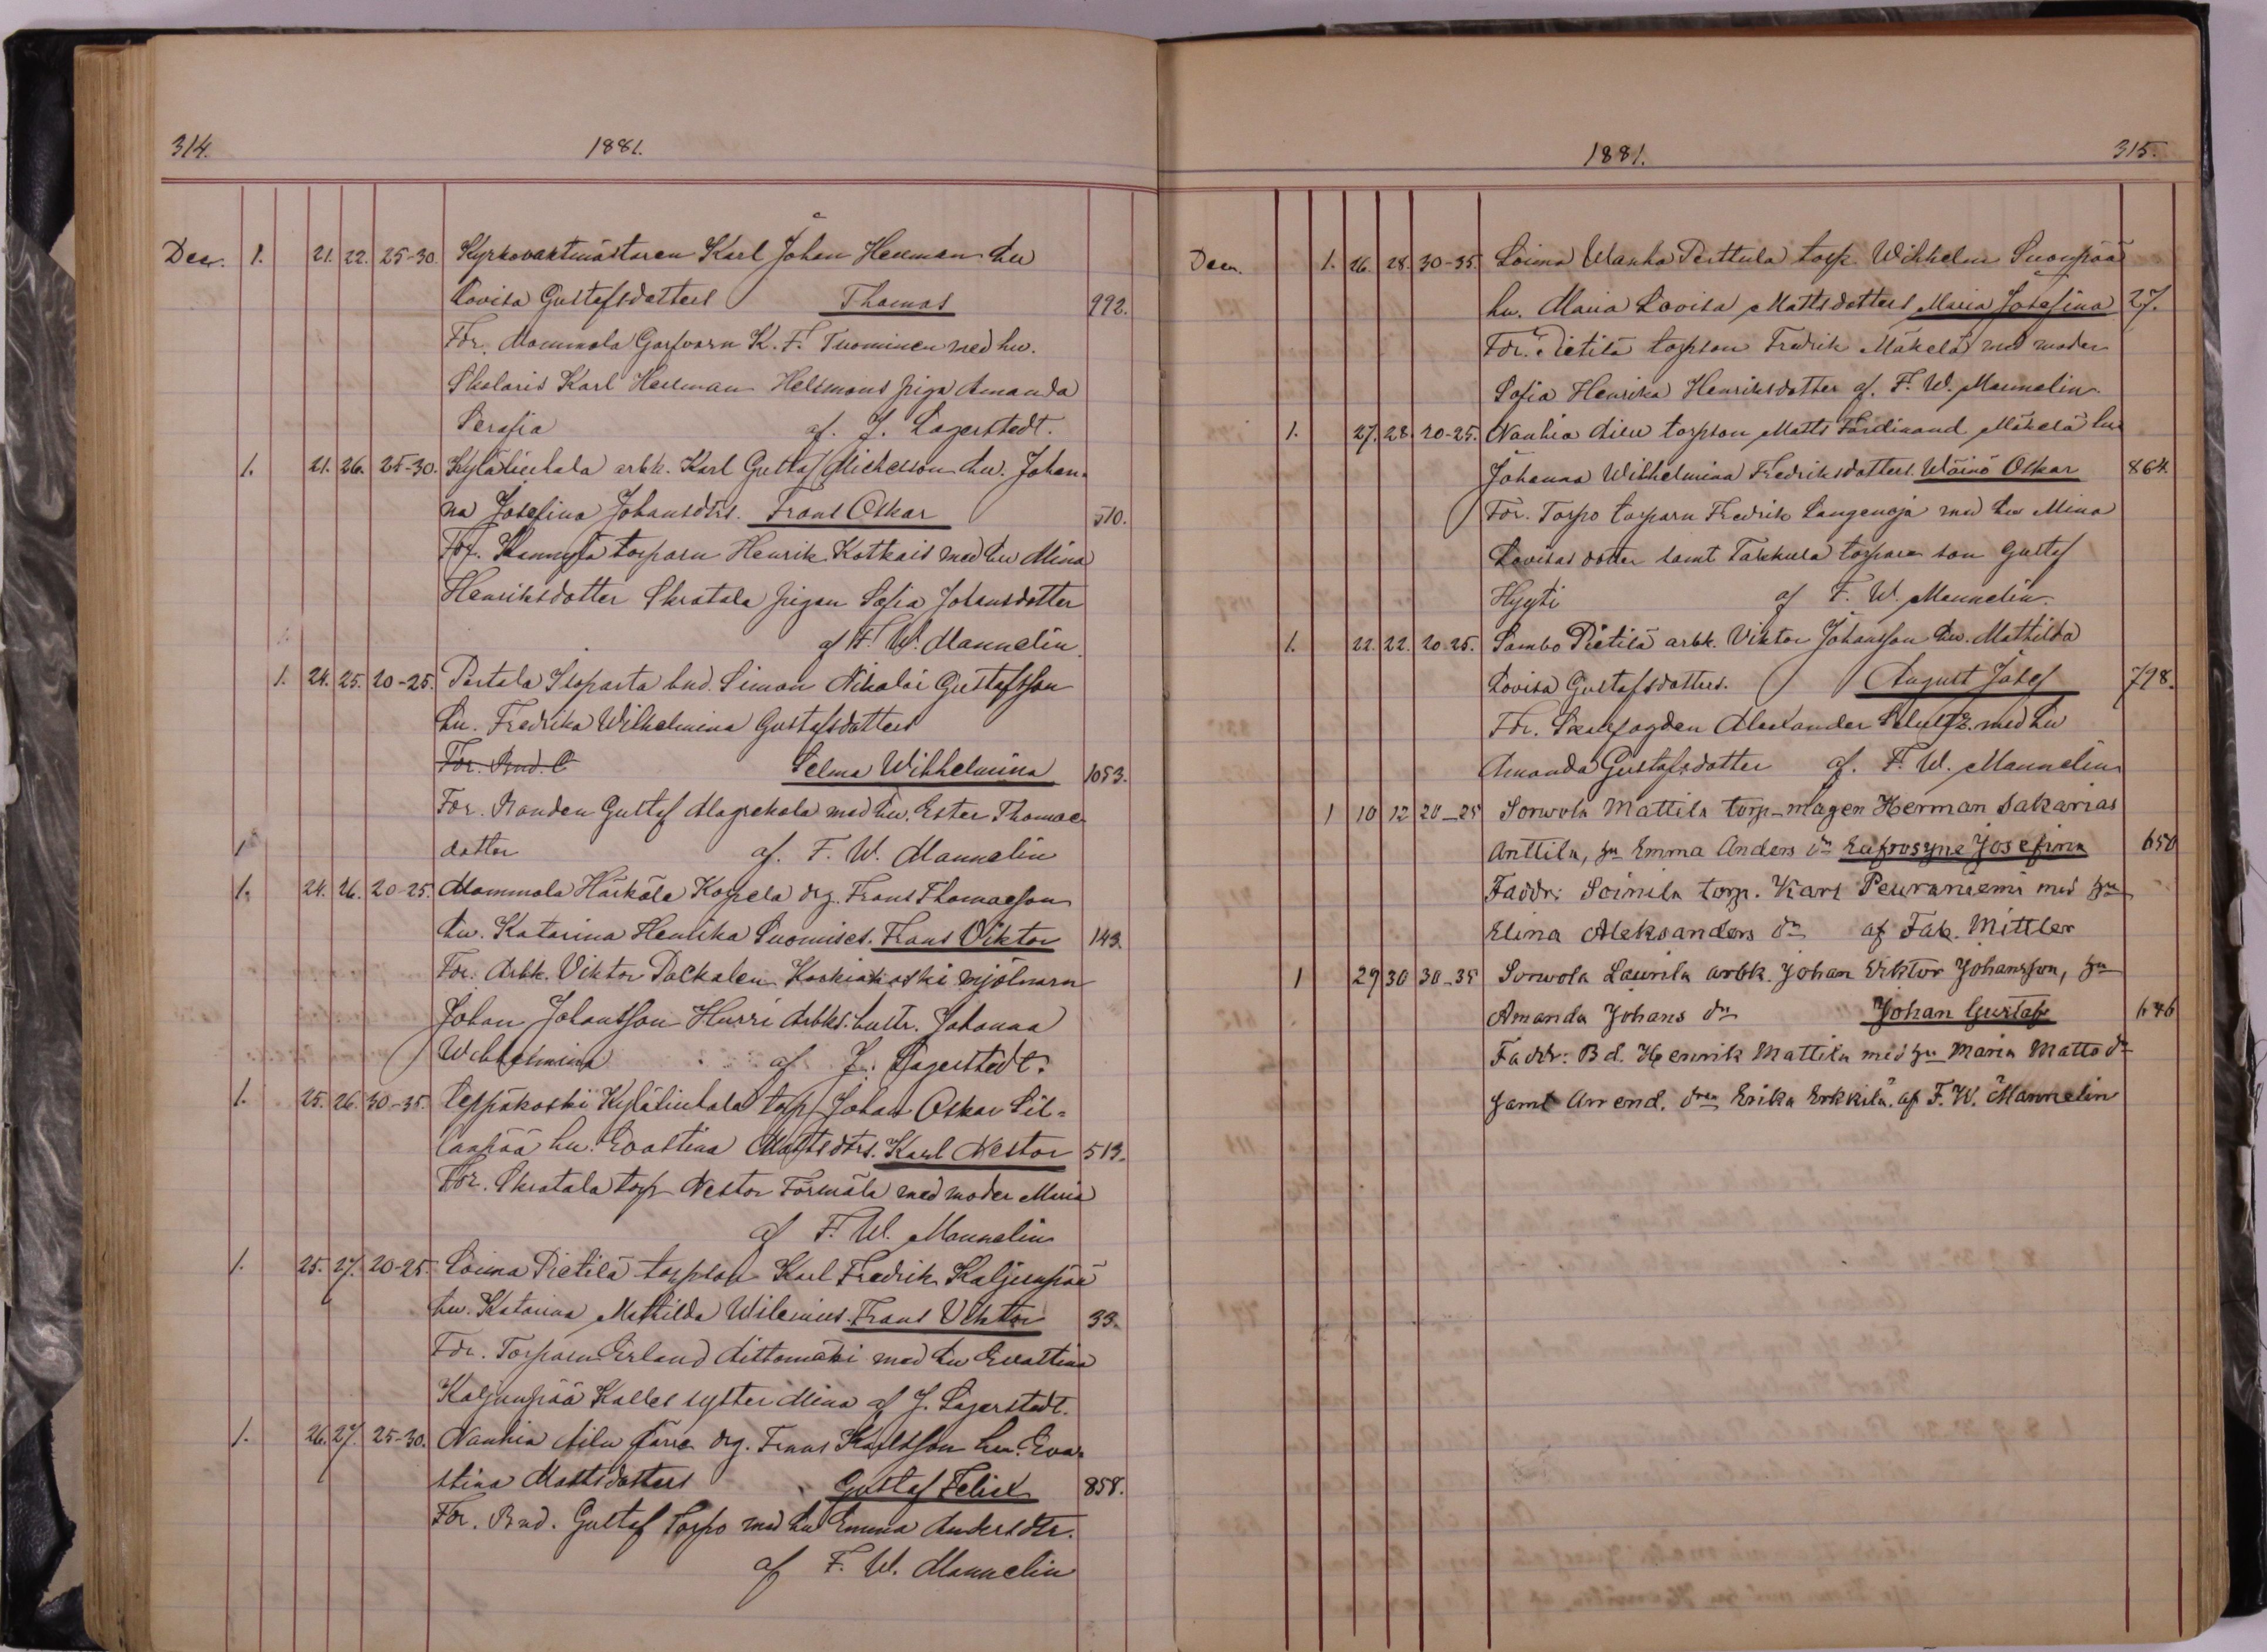 314.
1881.
Dec. 1. 21. 22. 25-30. Kyrkovaktmästaren Karl Johan Herman hu
Lovisa Gustafsdotters Thomas 992.
For. Mommola Garfvarn K. F. Tuominen med hu.
Skolaris Karl Herman Helsmans piga Amanda
Serafia af. J. Lagerstedt.
1. 21. 26. 25-30. Kyläliuhala arbk. Karl Gustaf Michelsson hu. Johan-
na Josefina Johansdtrs. Frans Oskar 510.
For. torparn Henrik Kotkais med hu Mina
Henriksdotter Skratala pigan Sofia Johansdotter
af F. W. Mannelin.
1. 24. 25. 20-25. Pertala Isoparta bnd. Simon Nikolai Gustafsson
hu. Fredrika Wilhelmina Gustafsdotters
For. Bnd. C Selma Wilhelmina 1053.
For. Bonden Gustaf med hu. Ester Thomae
dotter af. F. W. Mannelin
1. 24. 26. 20-25. Mommola Härkälä Kopela drg. Frans Thomasson
hu. Katarina Henrika Suomises. Frans Viktor 143.
For. Arbk. Viktor Packalen Koskiokoski mjölnarn
Johan Johansson Hurri Arbks. hustr. Johanna
Wilhelmina af J. Lagerstedt.
1. 25. 26. 30-35. Leppäkoski Kyläliuhala torp. Johan Oskar Sil-
lanpää hu. Evastina Mattsdtrs. Karl Nestor 513.
For. Skratala torp Nestor Formåla med moder Maria
af F. W. Mannelin
1. 25. 27. 20-25. Loima Pietilä torpson Karl Fredrik Kaljunpää
hu. Katarina Mathilda Wilenius. Frans Viktor 33.
For. Torparn Erland Aittomäki med hu Evastina
Kaljunpää Kalles syster Mina af J. Lagerstedt.
1. 26. 27. 25-30. Nanhia Ailu drg. Frans Karlsson hu. Eva-
stina Mattsdotters Gustaf Felix 858.
For. Bnd. Gustaf Torpo med hu Emma Andersdtr.
af F. W. Mannelin
1881.
315.
Decem. 1. 26. 28. 30-35. Loima Wanha Perttula torp. Wilhelm Suonpää
hu. Maria Lovisa Mattsdotters Maria Josefina 27.
For. Pietilä torpson Fredrik Mäkelä med moder
Sofia Henrika Henriksdotter af. F. W. Mannelin.
1. 27. 28. 20-25. Nanhia Ailu torpson Matts Ferdinand Mäkelä hu
Johanna Wilhelmina Fredriksdotters. Wäinö Oskar 864.
For. Torpo torparn Fredrik Langenoja med hu Mina
Lovisas dotter samt Takkula torpare son Gustaf
Hyyti af F. W. Mannelin.
1. 22. 22. 20-25. Sambo Pietilä arbk. Viktor Johansson hu. Mathilda
Lovisa Gustafsdotters. August Josef 798.
For. Skallfogden Alexander Schultz. med hu
Amanda Gustafsdotter af. F. W. Mannelin
1 10 12 20-25 Sorvola Mattila torp-mågen Herman Sakarias
Anttila, hu Emma Anders dr Eufrosyne Josefina 650
Faddr: Soinila torp. Karl Peuraniemi med hu
Elina Aleksanders dr af Fab. Mittler
1 29 30 30-35 Sorvola Laurila arbk. Johan Viktor Johansson, hu
Amanda Johans dr Johan Gustaf 646
Faddr: Bd. Henrik Mattila med hu Maria Matts dr
samt Arrend. drn Erika Erkkilä. af F. W. Mannelin